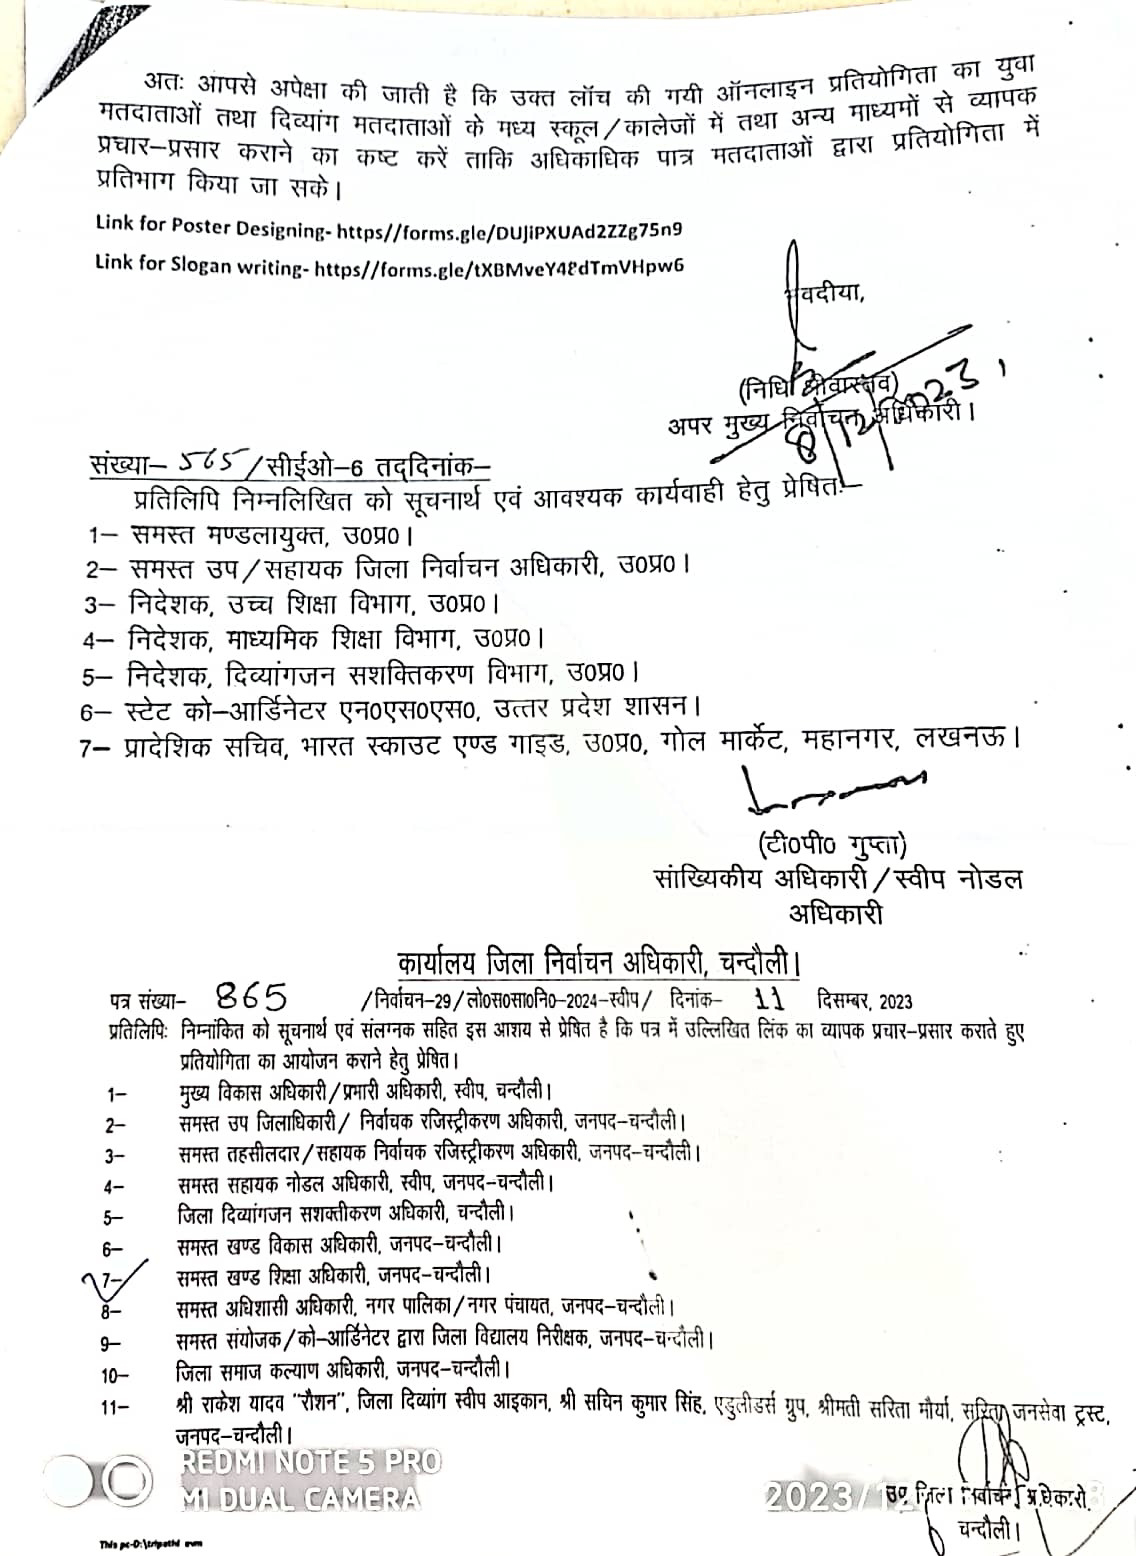 अतः आपसे अपेक्षा की जाती है कि उक्त लॉच की गयी ऑनलाइन प्रतियोगिता का युवा
मतदाताओं तथा दिव्यांग मतदाताओं के मध्य स्कूल/कालेजों में तथा अन्य माध्यमों से व्यापक
प्रचार–प्रसार कराने का कष्ट करें ताकि अधिकाधिक पात्र मतदाताओं द्वारा प्रतियोगिता में
प्रतिभाग किया जा सके।
Link for Poster Designing- https//forms.gle/DUJiPXUAd2ZZg75n9
Link for Slogan writing- https//forms.gle/tXBMveY48dTmVHpw6
भवदीया,
(निधि श्रीवास्तव)
अपर मुख्य निर्वाचन अधिकारी।
8/12/2023
संख्या– 565/सीईओ–6 तद्दिनांक–
प्रतिलिपि निम्नलिखित को सूचनार्थ एवं आवश्यक कार्यवाही हेतु प्रेषितः–
1– समस्त मण्डलायुक्त, उ0प्र0।
2– समस्त उप/सहायक जिला निर्वाचन अधिकारी, उ0प्र0।
3– निदेशक, उच्च शिक्षा विभाग, उ0प्र0।
4– निदेशक, माध्यमिक शिक्षा विभाग, उ0प्र0।
5– निदेशक, दिव्यांगजन सशक्तिकरण विभाग, उ0प्र0।
6– स्टेट को–आर्डिनेटर एन0एस0एस0, उत्तर प्रदेश शासन।
7– प्रादेशिक सचिव, भारत स्काउट एण्ड गाइड, उ0प्र0, गोल मार्केट, महानगर, लखनऊ।
(टी0पी0 गुप्ता)
सांख्यिकीय अधिकारी/स्वीप नोडल
अधिकारी
कार्यालय जिला निर्वाचन अधिकारी, चन्दौली।
पत्र संख्या– 865 /निर्वाचन–29/लो0स0सा0नि0–2024–स्वीप/ दिनांक– 11 दिसम्बर, 2023
प्रतिलिपिः निम्नांकित को सूचनार्थ एवं संलग्नक सहित इस आशय से प्रेषित है कि पत्र में उल्लिखित लिंक का व्यापक प्रचार–प्रसार कराते हुए
प्रतियोगिता का आयोजन कराने हेतु प्रेषित।
1– मुख्य विकास अधिकारी/प्रभारी अधिकारी, स्वीप, चन्दौली।
2– समस्त उप जिलाधिकारी/ निर्वाचक रजिस्ट्रीकरण अधिकारी, जनपद–चन्दौली।
3– समस्त तहसीलदार/सहायक निर्वाचक रजिस्ट्रीकरण अधिकारी, जनपद–चन्दौली।
4– समस्त सहायक नोडल अधिकारी, स्वीप, जनपद–चन्दौली।
5– जिला दिव्यांगजन सशक्तीकरण अधिकारी, चन्दौली।
6– समस्त खण्ड विकास अधिकारी, जनपद–चन्दौली।
7– समस्त खण्ड शिक्षा अधिकारी, जनपद–चन्दौली।
8– समस्त अधिशासी अधिकारी, नगर पालिका/नगर पंचायत, जनपद–चन्दौली।
9– समस्त संयोजक/को–आर्डिनेटर द्वारा जिला विद्यालय निरीक्षक, जनपद–चन्दौली।
10– जिला समाज कल्याण अधिकारी, जनपद–चन्दौली।
11– श्री राकेश यादव "रौशन", जिला दिव्यांग स्वीप आइकान, श्री सचिन कुमार सिंह, एडुलीडर्स ग्रुप, श्रीमती सरिता मौर्या, सरिता जनसेवा ट्रस्ट,
जनपद–चन्दौली।
REDMI NOTE 5 PRO
MI DUAL CAMERA
2023/1
उप जिला निर्वाचन अधिकारी
चन्दौली।
This pc-D:\tripathi evm